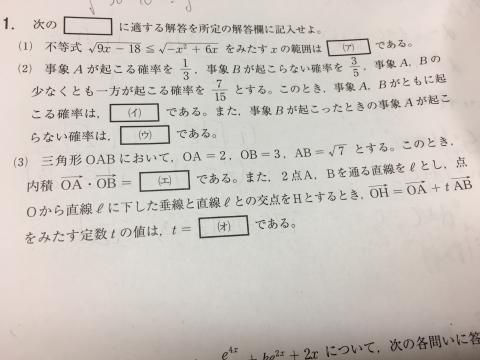 1. 次の□に適する解答を所定の解答欄に記入せよ。
(1) 不等式 √9x－18 ≦ √－x²＋6x をみたす x の範囲は (ア) である。
(2) 事象 A が起こる確率を 1/3，事象 B が起こらない確率を 3/5，事象 A，B の
少なくとも一方が起こる確率を 7/15 とする。このとき，事象 A，B がともに起
こる確率は，(イ) である。また，事象 B が起こったときの事象 A が起こ
らない確率は，(ウ) である。
(3) 三角形 OAB において，OA＝2，OB＝3，AB＝√7 とする。このとき，
内積 OA・OB＝ (エ) である。また，2点 A，B を通る直線を ℓ とし，点
O から直線 ℓ に下した垂線と直線 ℓ との交点を H とするとき，OH＝OA＋t AB
をみたす定数 t の値は，t＝ (オ) である。
e⁴ˣ＋be²ˣ＋2x について，次の各問いに答